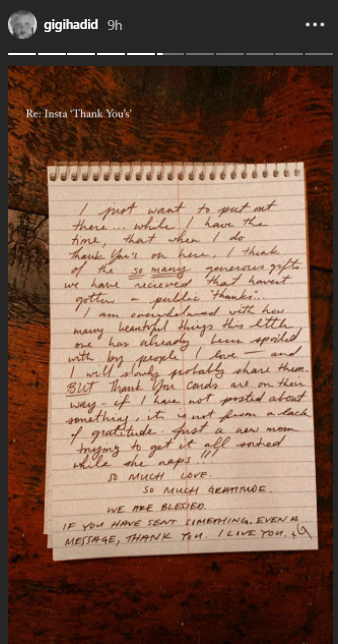 gigihadid 9h
Re: Insta 'Thank You's'
I just want to put out
there... while I have the
time, that when I do
Thank You's on here, I think
of the so many generous gifts
we have recieved that havent
gotten a public "thanks"...
I am overwhelmed with how
many beautiful things this little
one has already been spoiled
with by people I love — and
I will slowly probably share them.
BUT Thank You cards are on their
way - if I have not posted about
something, it is not from a lack
of gratitude. Just a new mom
trying to get it all sorted
while she naps!!!
SO MUCH LOVE.
SO MUCH GRATITUDE.
WE ARE BLESSED.
IF YOU HAVE SENT SOMETHING, EVEN A
MESSAGE, THANK YOU. I LOVE YOU. + G